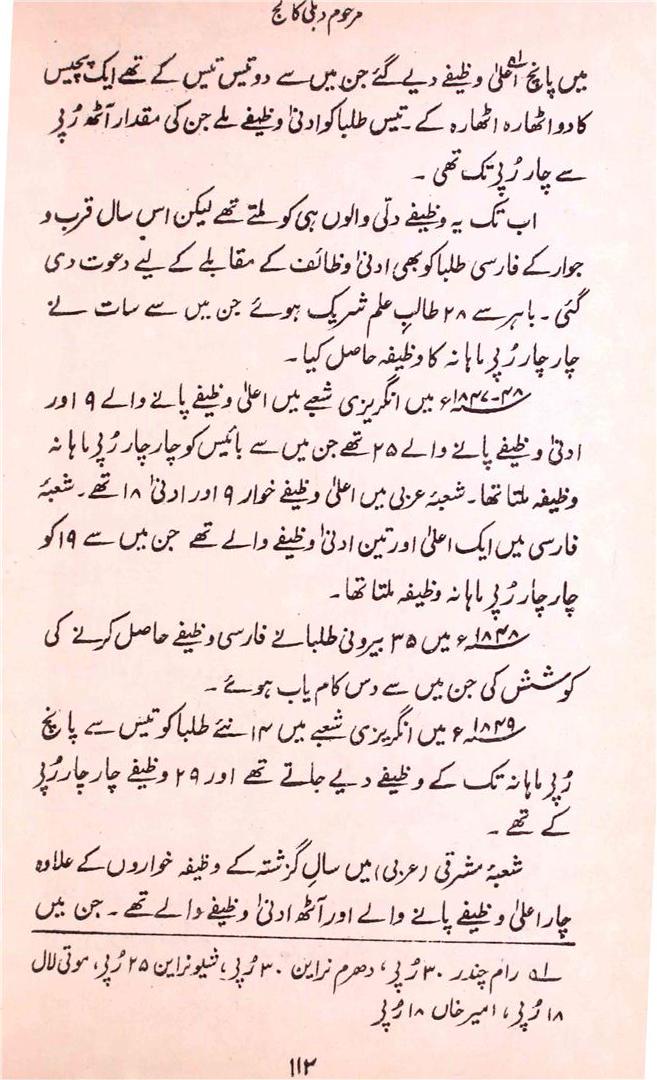 مرحوم دہلی کالج
میں پانچ اعلیٰ لہ وظیفے دیے گئے جن میں سے دو تیس تیس کے تھے ایک پچیس
کا دو اٹھارہ اٹھارہ کے۔ تیس طلبا کو ادنیٰ وظیفے ملے جن کی مقدار آٹھ رُپی
سے چار رُپی تک تھی۔
اب تک یہ وظیفے دلّی والوں ہی کو ملتے تھے لیکن اس سال قرب و
جوار کے فارسی طلبا کو بھی ادنیٰ وظائف کے مقابلے کے لیے دعوت دی
گئی۔ باہر سے ۲۸ طالبِ علم شریک ہوئے جن میں سے سات نے
چار چار رُپی ماہانہ کا وظیفہ حاصل کیا۔
۴۸-۱۸۴۷ء میں انگریزی شعبے میں اعلیٰ وظیفے پانے والے ۹ اور
ادنیٰ وظیفے پانے والے ۲۵ تھے جن میں سے بائیس کو چار چار رُپی ماہانہ
وظیفہ ملتا تھا۔ شعبۂ عربی میں اعلیٰ وظیفے خوار ۹ اور ادنیٰ ۱۸ تھے۔ شعبۂ
فارسی میں ایک اعلیٰ اور تین ادنیٰ وظیفے والے تھے جن میں سے ۱۹ کو
چار چار رُپی ماہانہ وظیفہ ملتا تھا۔
۱۸۴۸ء میں ۳۵ بیرونی طلبا نے فارسی وظیفے حاصل کرنے کی
کوشش کی جن میں سے دس کام یاب ہوئے۔
۱۸۴۹ء میں انگریزی شعبے میں ۱۴ نئے طلبا کو تیس سے پانچ
رُپی ماہانہ تک کے وظیفے دیے جاتے تھے اور ۲۹ وظیفے چار چار رُپی
کے تھے۔
شعبۂ مشرقی (عربی) میں سالِ گزشتہ کے وظیفہ خواروں کے علاوہ
چار اعلیٰ وظیفے پانے والے اور آٹھ ادنیٰ وظیفے والے تھے۔ جن میں
لہ رام چندر ۳۰ رُپی، دھرم نراین ۳۰ رُپی، شیو نراین ۲۵ رُپی، موتی لال
۱۸ رُپی، امیر خاں ۱۸ رُپی
۱۱۳